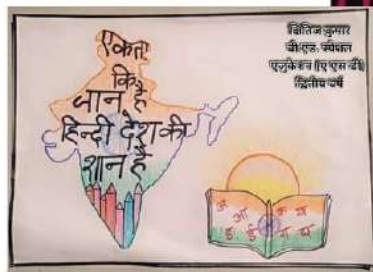 एकता
कि
जान है
हिन्दी देश की
शान है
क्षितिज कुमार
बी.एड. स्पेशल
एजुकेशन (ए एस डी)
द्वितीय वर्ष
अ आ
इ ई
क ख
ग घ